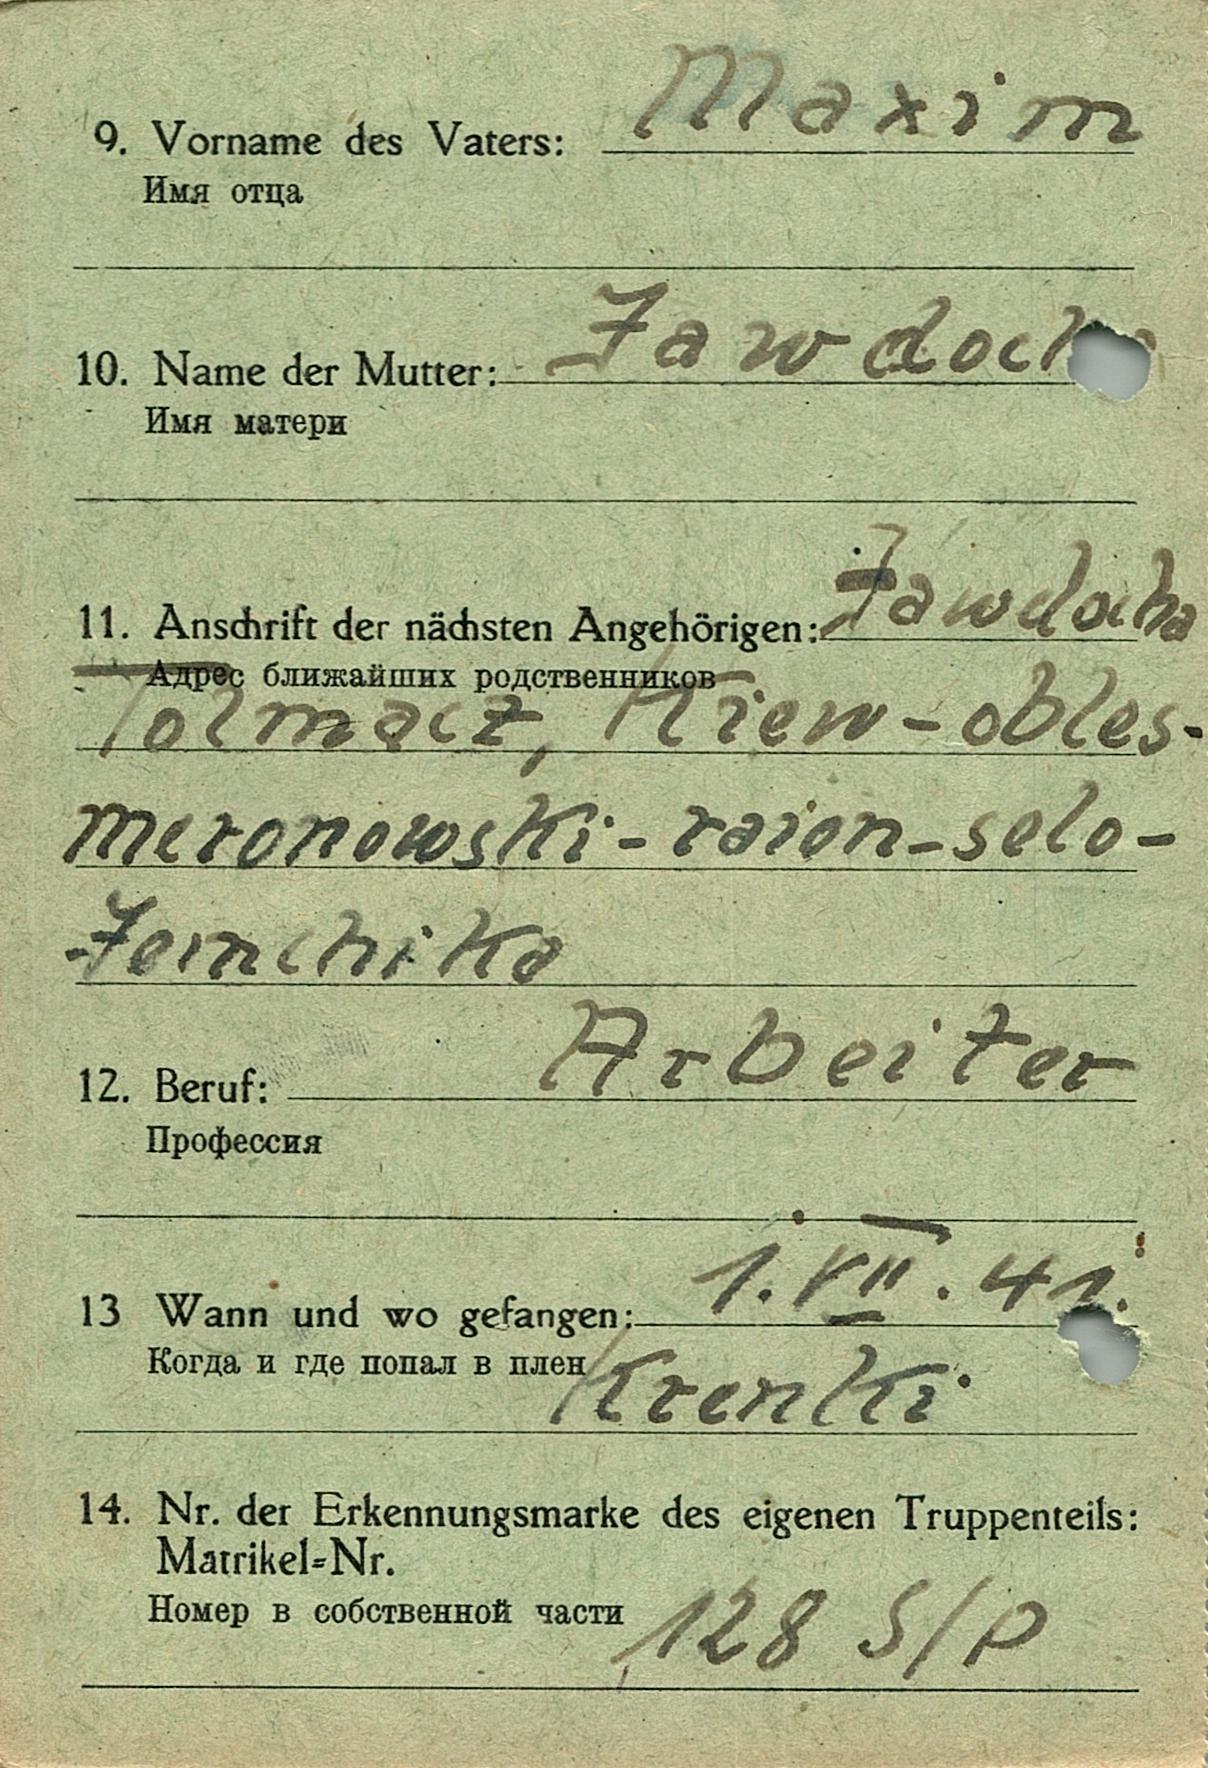 9. Vorname des Vaters: Maxim
Имя отца
10. Name der Mutter: Jawdoch
Имя матери
11. Anschrift der nächsten Angehörigen: Jawdocha
Адрес ближайших родственников
Tolmacz, Kiew-obles-
meronowski-raion-selo-
Jemchika
12. Beruf: Arbeiter
Профессия
13 Wann und wo gefangen: 1.VII.41.
Когда и где попал в плен
Krenki
14. Nr. der Erkennungsmarke des eigenen Truppenteils:
Matrikel-Nr.
Номер в собственной части 128 S/P